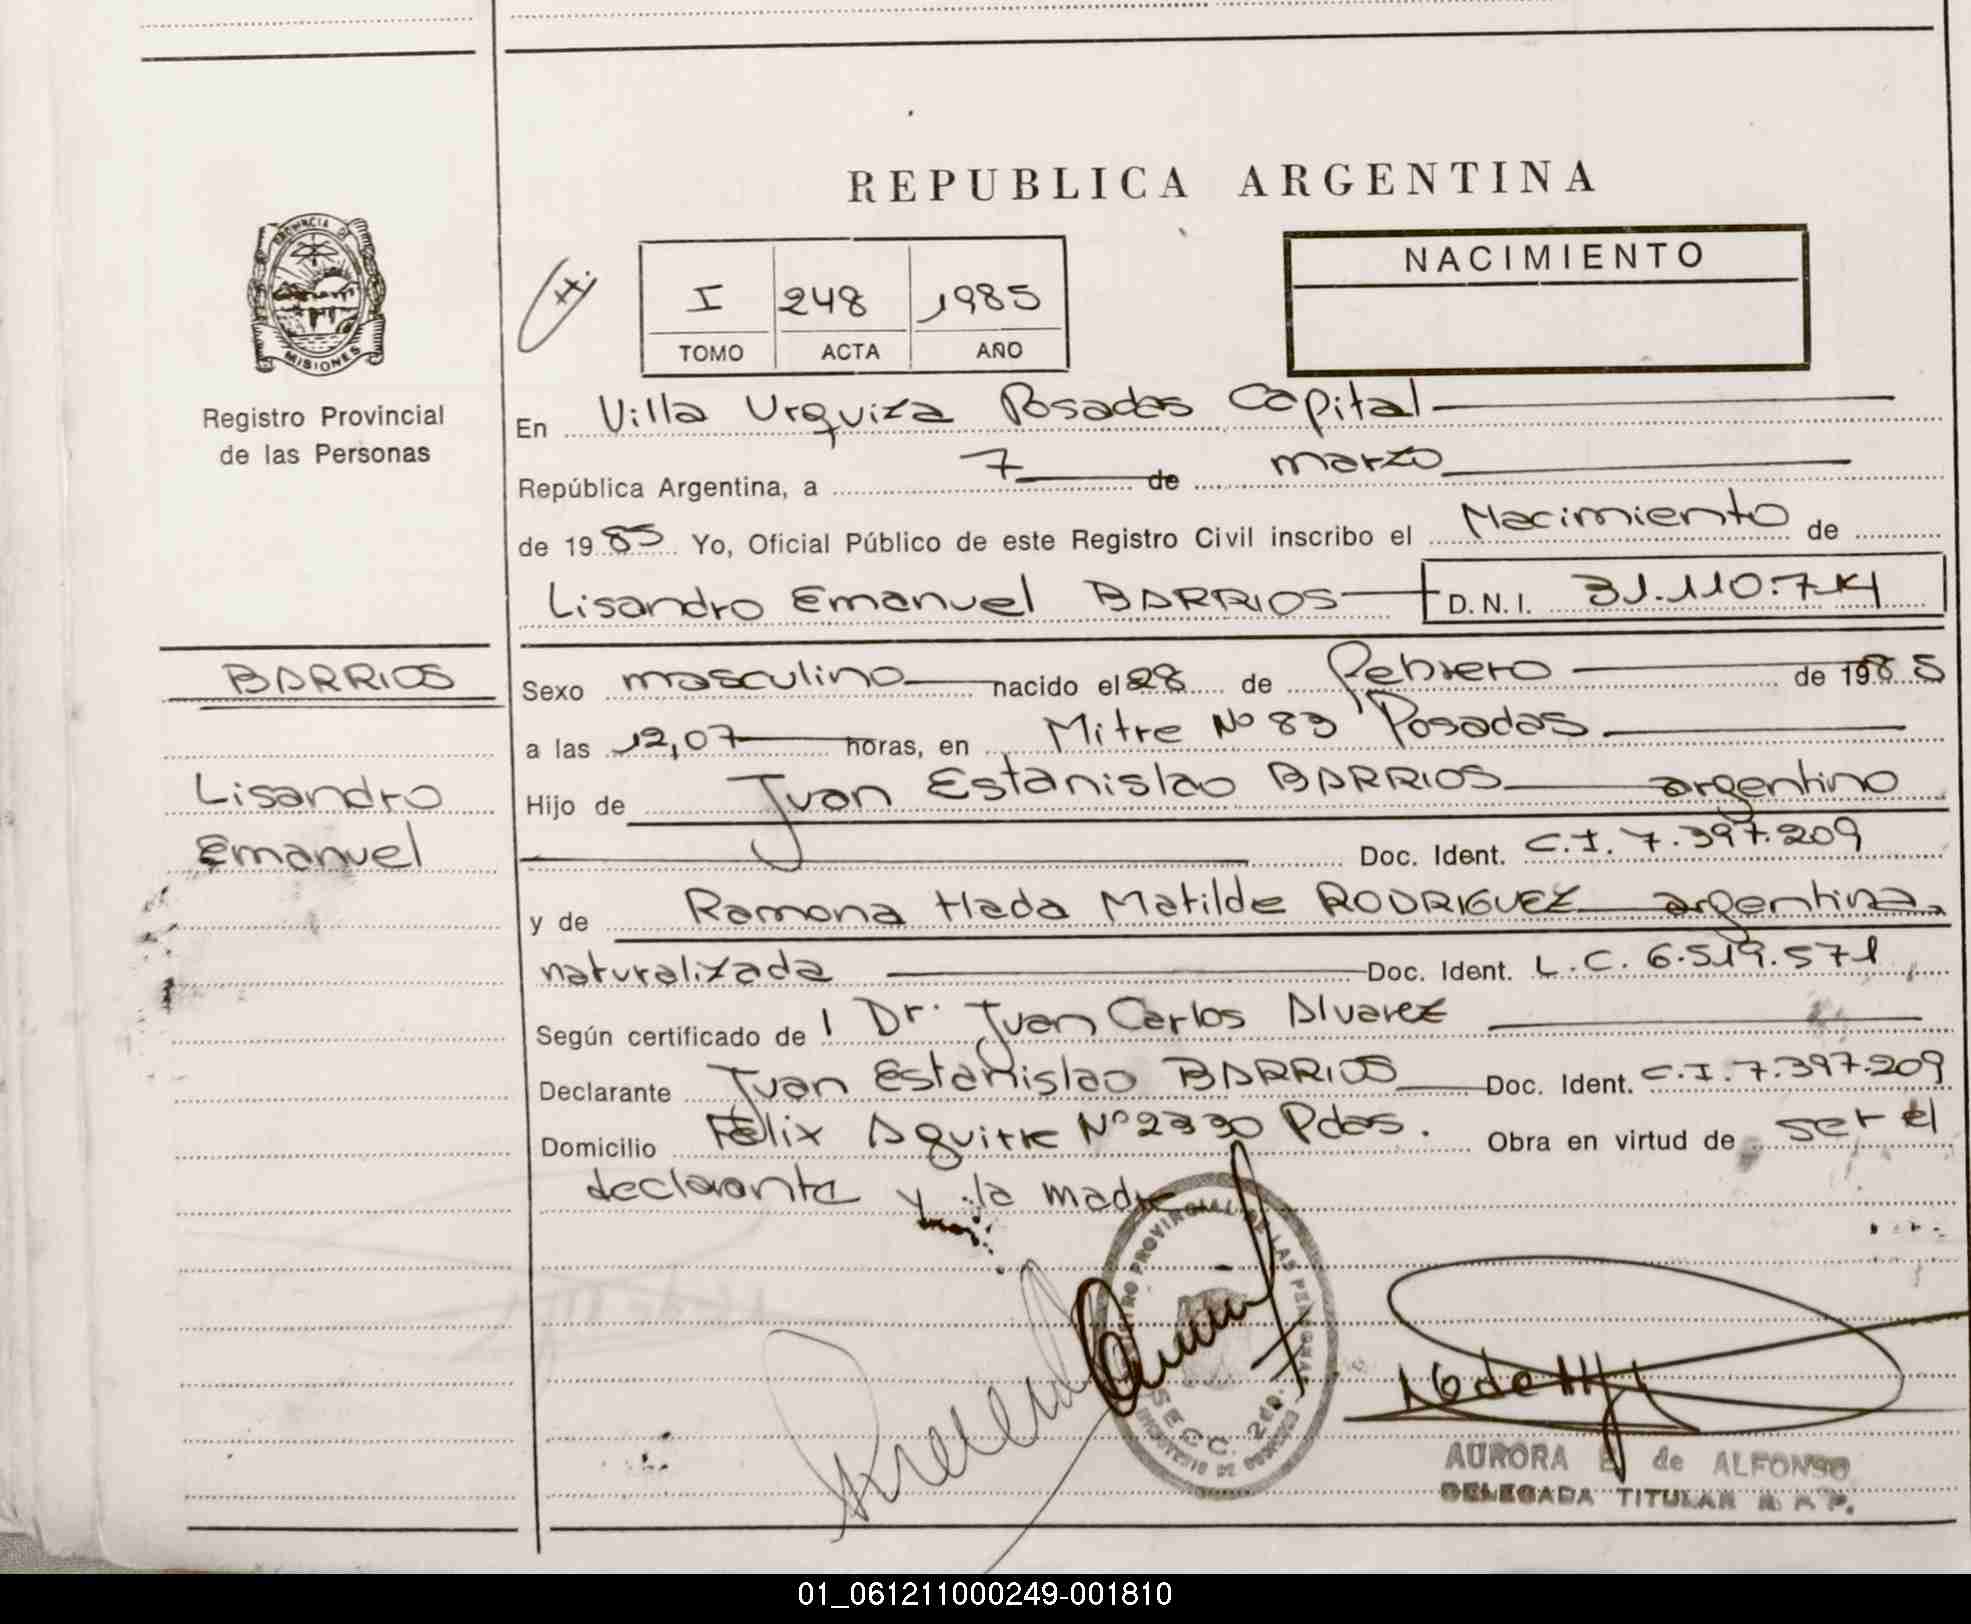 REPUBLICA ARGENTINA
PROVINCIA DE
MISIONES
Registro Provincial
de las Personas
I 248 1985
TOMO ACTA AÑO
NACIMIENTO
En Villa Urquiza Posadas Capital
República Argentina, a 7 de marzo
de 1985 Yo, Oficial Público de este Registro Civil inscribo el Nacimiento de
Lisandro Emanuel BARRIOS D.N.I. 31.110.714
BARRIOS
Lisandro
Emanuel
Sexo masculino nacido el 28 de febrero de 1985
a las 12,07 horas, en Mitre Nº 83 Posadas
Hijo de Juan Estanislao BARRIOS argentino
Doc. Ident. C.I. 7.397.209
y de Ramona Hada Matilde RODRIGUEZ argentina
naturalizada Doc. Ident. L.C. 6.519.571
Según certificado de l Dr. Juan Carlos Alvarez
Declarante Juan Estanislao BARRIOS Doc. Ident. C.I. 7.397.209
Domicilio Félix Aguirre Nº 2330 Pdas. Obra en virtud de ser el
declarante y la madre
REGISTRO PROVINCIAL DE LAS PERSONAS
SECC. 2da.
AURORA de ALFONSO
DELEGADA TITULAR R. P. P.
01_061211000249-001810